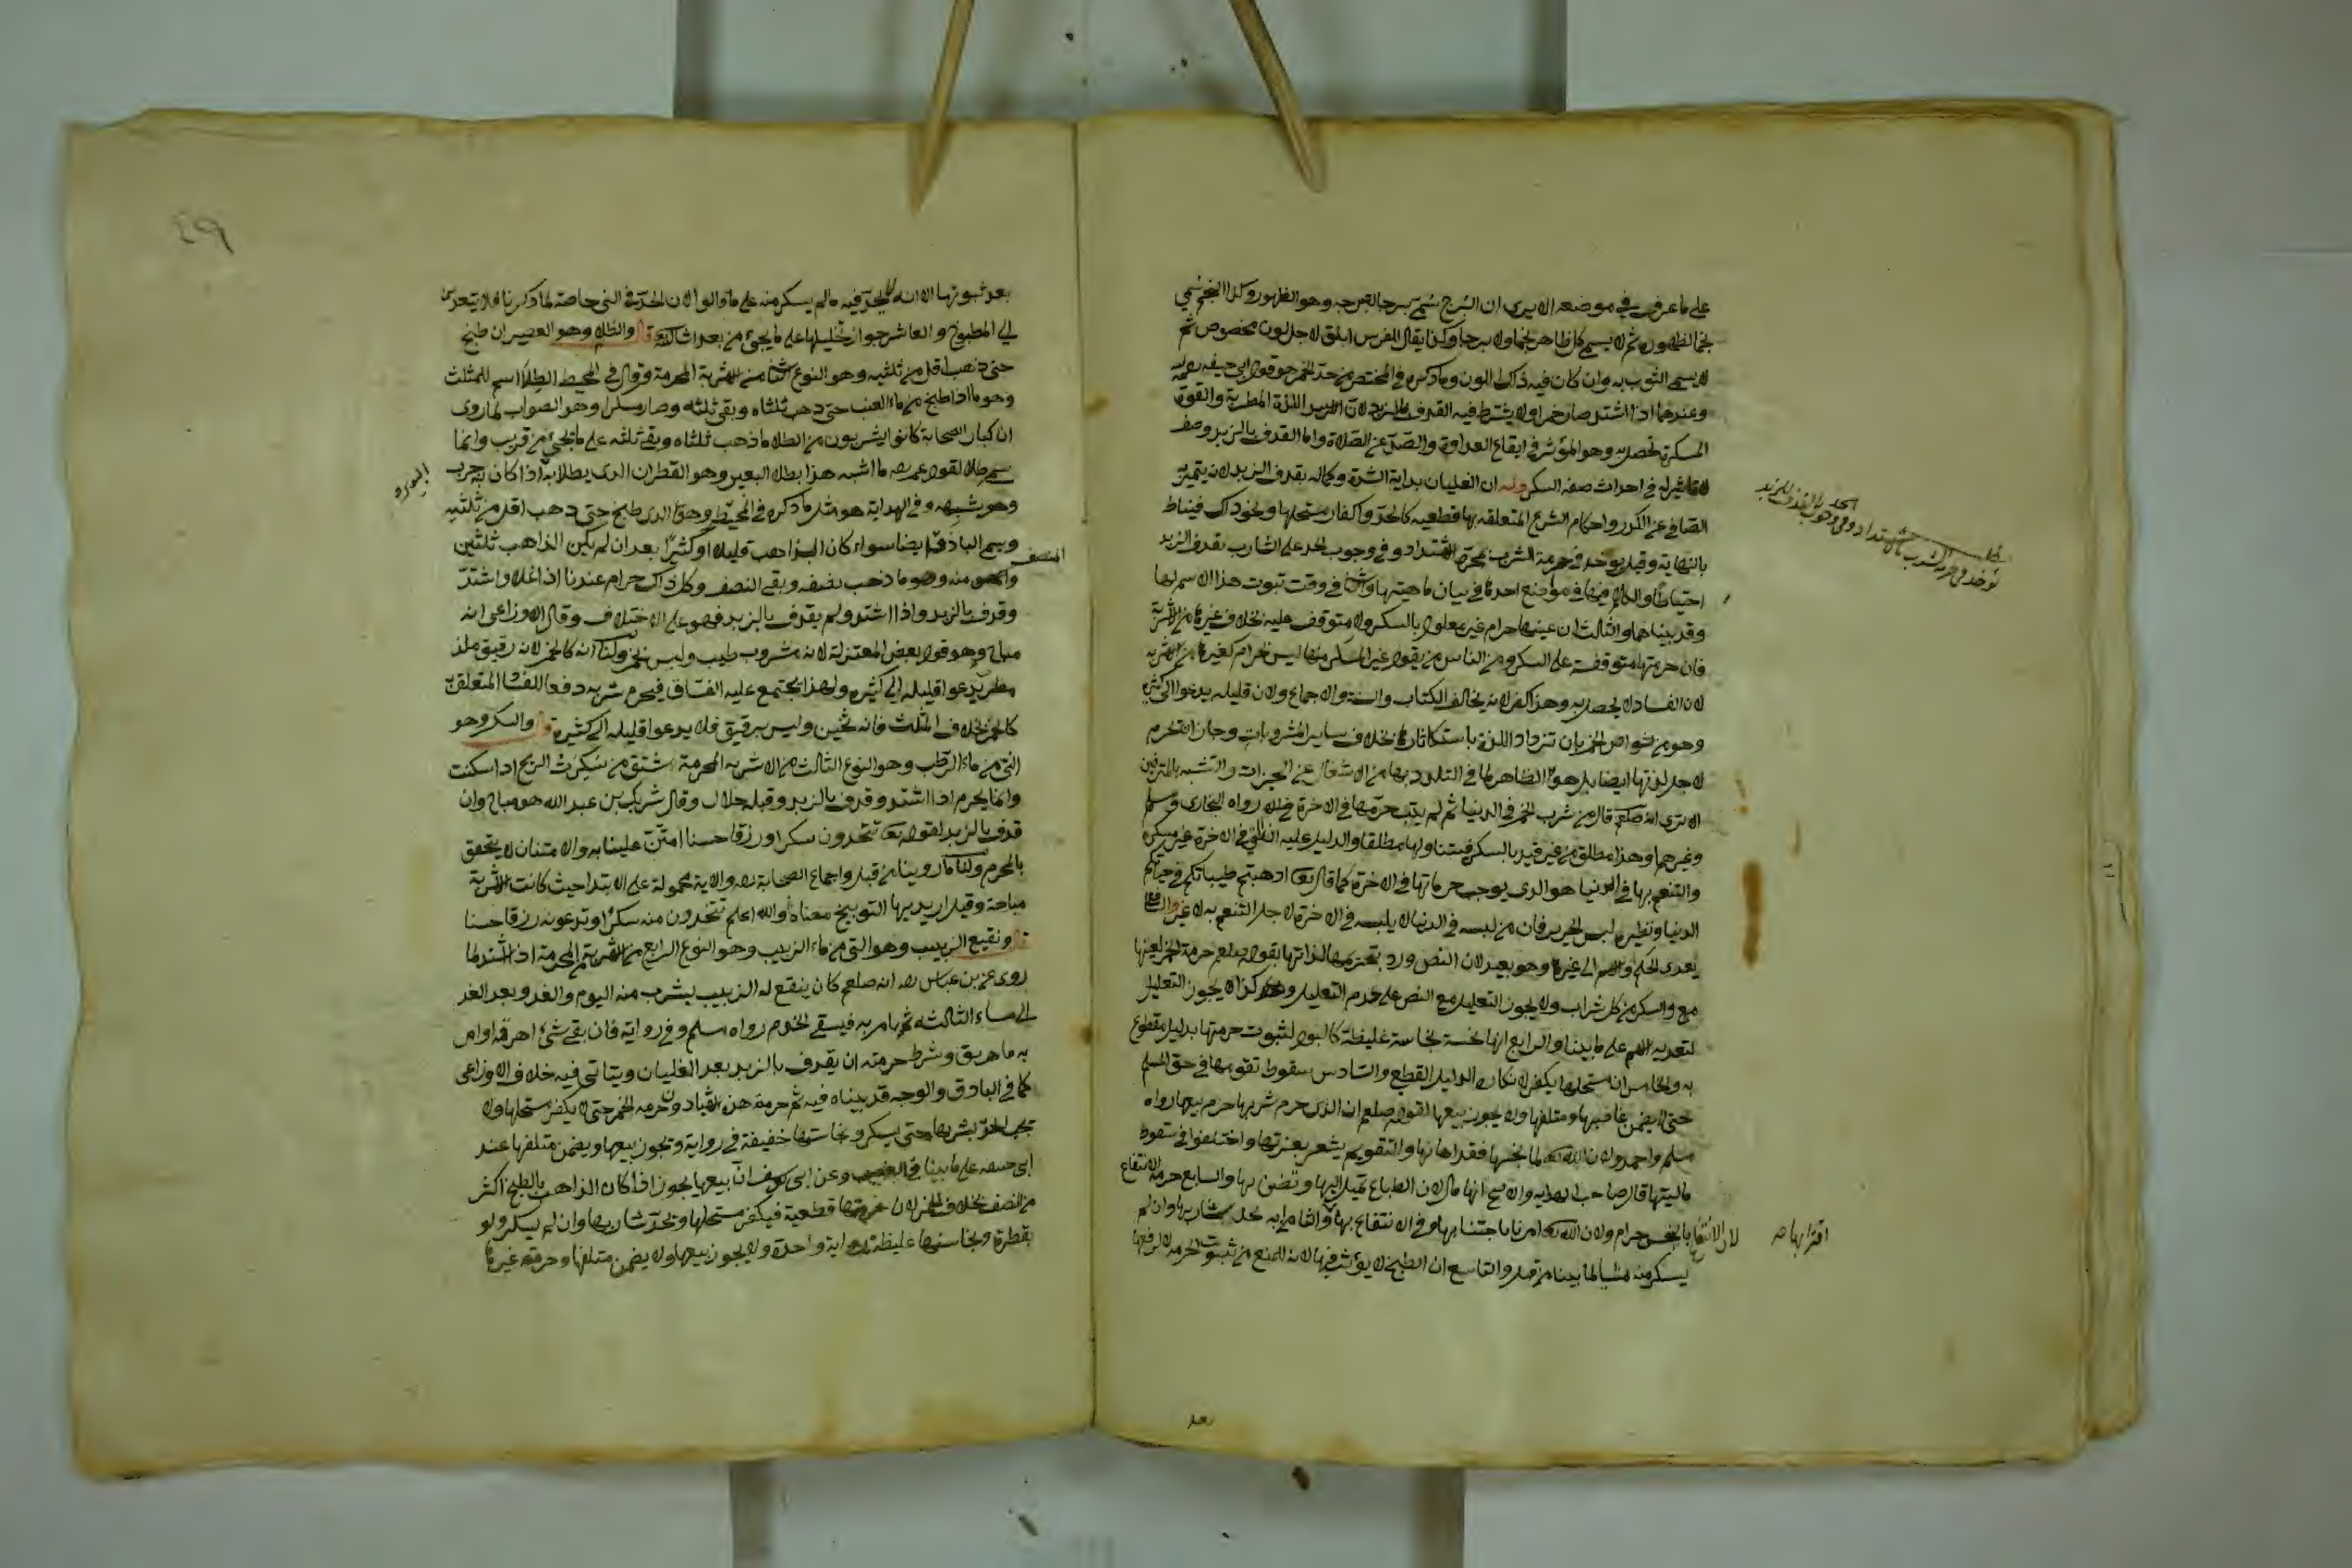 على ما عرف في موضعه الا يرى ان البرج سمي برجا لتبرجه وهو الظهور وكذا النجم سمي
نجما لظهوره ثم لا يسمى كل ظاهر نجما ولا برجا وكذا يقال للفرس ابلق لاجل لون مخصوص ثم
لا يسمى الثوب به وان كان فيه ذلك اللون وما ذكره في المختصر من حد الخمر هو قول ابي حنيفه
وعندهما اذا اشتد صار خمرا ولا يشترط فيه القذف بالزبد لان اللذة المطربة والقوة
المسكرة تحصل به وهو المؤثر في ايقاع العداوة والصد عن الصلاة واما القذف بالزبد وصف
لا تاثير له في احداث صفة السكر وله ان الغليان بداية الشدة وكماله بقذف الزبد لانه يتميز به
الصافي عن الكدر واحكام الشرع المتعلقة بها قطعيه كالحد واكفار مستحلها ونحو ذلك فيناط
بالنهاية وقيل يوخذ في حرمة الشرب بمجرد الاشتداد وفي وجوب الحد على الشارب بقذف الزبد
احتياطا والكلام فيها في مواضع احدها في بيان ماهيتها والثاني في وقت ثبوت هذا الاسم لها
وقد بيناهما والثالث ان عينها حرام غير معلول بالسكر ولا متوقف عليه بخلاف غيرها من الاشربة
فان حرمتها متوقفة على السكر ومن الناس من يقول غير المسكر منها ليس بحرام كغيرها من الاشربه
لان الفساد لا يحصل به وهذا كفر لانه يخالف الكتاب والسنة والاجماع ولان قليله يدعوا الى كثيره
وهو من خواص الخمر بان تزداد اللذة باستكثارها بخلاف ساير المشروبات وجاز ان تحرم
لاجل لذتها ايضا بل هو الظاهر لما في التلذذ بها من الاشتغال عن الخيرات والتشبه بالمترفين
الا ترى انه صلعم قال من شرب الخمر في الدنيا ثم لم يتب حرمها في الاخرة رواه البخاري ومسلم
وغيرهما وهذا مطلق من غير قيد بالسكر فيتناولها مطلقا والدليل عليه انها في الاخرة غير مسكرة
والتنعم بها في الدنيا هو الذي يوجب حرمانها في الاخرة كما قال تعا اذهبتم طيباتكم في حياتكم
الدنيا ونظيره لبس الحرير فان من لبسه في الدنيا لا يلبسه في الاخرة لاجل التنعم به لا غير
يعدي الحكم والاسم الى غيرها وهو بعيد لان النص ورد بتحريمها لذاتها بقوله صلعم حرمت الخمر لعينها
مع والسكر من كل شراب ولا يجوز التعليل مع النص على عدم التعليل وكذا لا يجوز التعليل
لتعديه الاسم على ما بينا والرابع انها نجسة نجاسة غليظة كالبول لثبوت حرمتها بدليل مقطوع
به والخامس ان مستحلها يكفر لانكاره الدليل القطع والسادس سقوط تقومها في حق المسلم
حتى لا يضمن غاصبها ومتلفها ولا يجوز بيعها لقوله صلعم ان الذي حرم شربها حرم بيعها رواه
مسلم واحمد ولان الله تعا لما نجسها فقد اهانها والتقويم يشعر بعزتها واختلفوا في سقوط
ماليتها قال صاحب الهدايه والاصح انها مال لان الطباع تميل اليها وتضن بها والسابع حرمة الانتفاع
لان الانتفاع بالنجس حرام ولان الله تعا امرنا باجتنابها وفي الانتفاع بها والثامن انه يحد شاربها وان لم
اقترابها صح
يسكر منه لما بينا من قبل والتاسع ان الطبخ لا يؤثر فيها لانه للمنع من ثبوت الحرمة لا لرفعها
بعد
بعد ثبوتها الا انه لا يحد فيه ما لم يسكر منه على ما قالوا لان الحد في الني خاصة لما ذكرنا فلا يتعدى
الى المطبوخ والعاشر جواز تخليلها على ما يجئ من بعد ان شاء الله تعا قال والطلاء وهو العصير ان طبخ
حتى ذهب اقل من ثلثيه وهو النوع الثاني من الاشربة المحرمة وقال في المحيط الطلا اسم للمثلث
وهو ما اذا طبخ من ماء العنب حتى ذهب ثلثاه وبقي ثلثه وصار مسكرا وهو الصواب لما روى
ان كبار الصحابة كانوا يشربون من الطلا ما ذهب ثلثاه وبقي ثلثه على ما يجئ من قريب وانما
سمي طلا لقول عمر رضه ما اشبه هذا بطلا البعير وهو القطران الذي يطلا به اذا كان به جرب
وهو يشبهه وفي الهداية هو مثل ما ذكره في المحيط وهو الذي طبخ حتى ذهب اقل من ثلثيه
ويسمى الباذق ايضا سواء كان الذاهب قليلا او كثيرا بعد ان لم يكن الذاهب ثلثين
المنصف
منه وهو ما ذهب نصفه وبقي النصف وكل ذلك حرام عندنا اذا غلا واشتد
وقذف بالزبد واذا اشتد ولم يقذف بالزبد فهو على الاختلاف وقال الاوزاعي انه
مباح وهو قول بعض المعتزلة لانه مشروب طيب وليس بخمر ولنا انه كالخمر لانه رقيق ملذ
مطرب يدعوا قليله الى كثيره ولهذا يجتمع عليه الفساق فيحرم شربه دفعا للفساد المتعلق به
كالخمر بخلاف المثلث فانه ثخين وليس برقيق فلا يدعوا قليله الى كثيره قال والسكر وهو
الني من ماء الرطب وهو النوع الثالث من الاشربه المحرمة اشتق من سكرت الريح اذا سكنت
وانما يحرم اذا اشتد وقذف بالزبد وقبله حلال وقال شريك بن عبد الله هو مباح وان
قذف بالزبد لقوله تعا تتخذون سكرا ورزقا حسنا امتن علينا به والامتنان لا يتحقق
بالمحرم ولنا ما روينا من قبل واجماع الصحابة رضه والاية محمولة على الابتدا حيث كانت الاشربة
مباحة وقيل اريد بها التوبيخ معناه والله اعلم تتخذون منه سكرا وتدعونه رزقا حسنا
قال ونقيع الزبيب وهو الني من ماء الزبيب وهو النوع الرابع من الاشربة المحرمة اذا اشتد لما
روى عن بن عباس رضه انه صلعم كان ينقع له الزبيب يشرب منه اليوم والغد وبعد الغد
الى مساء الثالثة ثم يامر به فيسقى الخدم رواه مسلم وفي رواية فان بقي شئ اهرقه او امر
به فاهريق وشرط حرمته ان يقذف بالزبد بعد الغليان ويتاتى فيه خلاف الاوزاعي
كما في الباذق والوجه قد بيناه فيه ثم حرمة هذه الاشياء دون حرمه الخمر حتى لا يكفر مستحلها ولا
يجب الحد بشربها حتى يسكر ونجاستها خفيفة في رواية ويجوز بيعها ويضمن متلفها عند
ابي حنيفه على ما بينا في الغصب وعن ابي يوسف انه بيعها يجوز اذا كان الذاهب بالطبخ اكثر
من النصف بخلاف الخمر لان حرمتها قطعية فيكفر مستحلها ويحد شاربها وان لم يسكر ولو
بقطرة ونجاستها غليظة رواية واحدة ولا يجوز بيعها ولا يضمن متلفها وحرمة غيرها